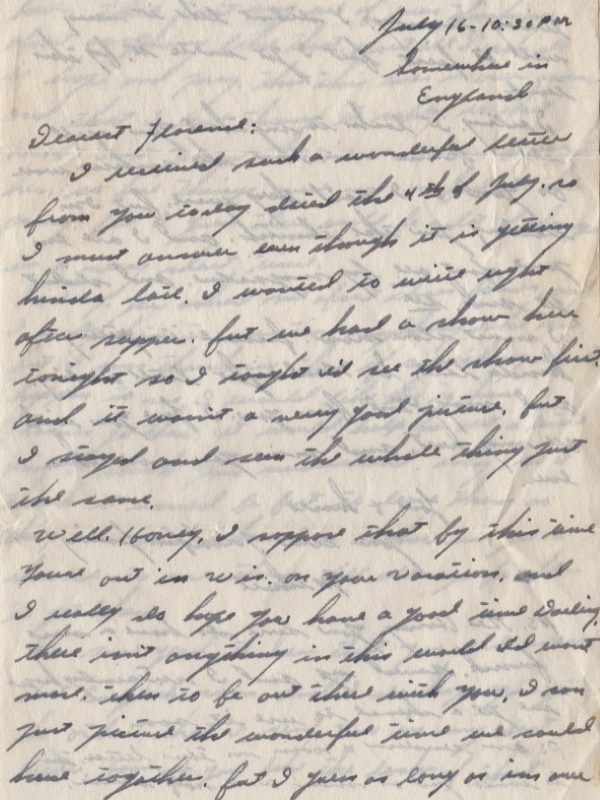 July 16-10:30 PM
Somewhere in
England
Dearest Florence:
I received such a wonderful letter
from you today dated the 4th of July. so
I must answer even though it is getting
kinda late. I wanted to write right
after supper. but we had a show here
tonight so I tought I'd see the show first.
and it wasn't a very good picture. but
I stayed and seen the whole thing just
the same.
Well. Honey. I suppose that by this time
youre out in Wis. on your vacation. and
I really do hope you have a good time Darling.
there isn't anything in this world I'd want
more. then to be out there with you. I can
just picture the wonderful time we could
have together. but I guess as long as im over